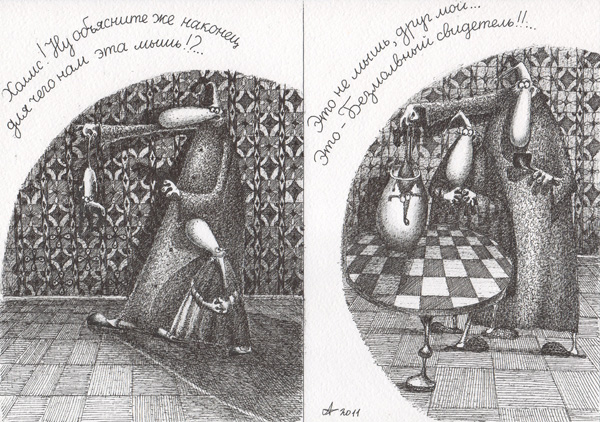 Холмс! Ну объясните же наконец
для чего нам эта мышь!?...
Это не мышь, друг мой...
Это - Безмолвный свидетель!!...
А 2011